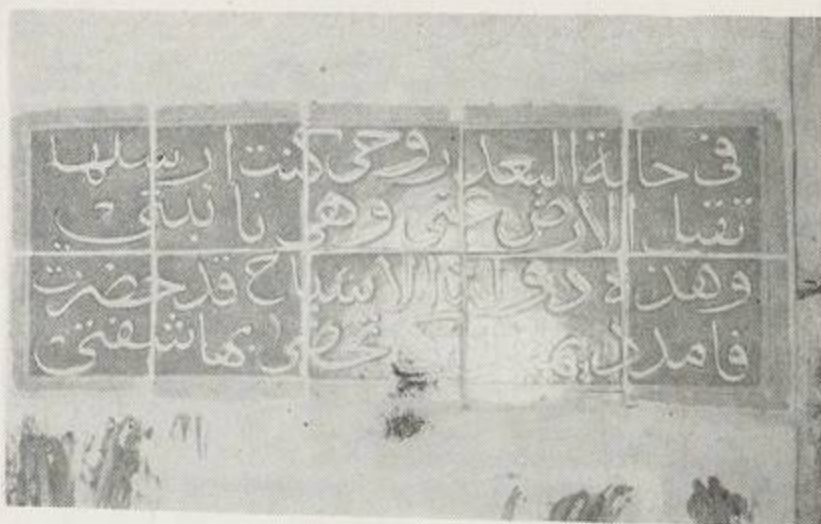 في حالة البعد روحي كنت ارسلها
تقبل الأرض عني وهي نا ئبتي
وهذه دولة الاشباح قد حضرت
فامدد تحضى بها شفتي